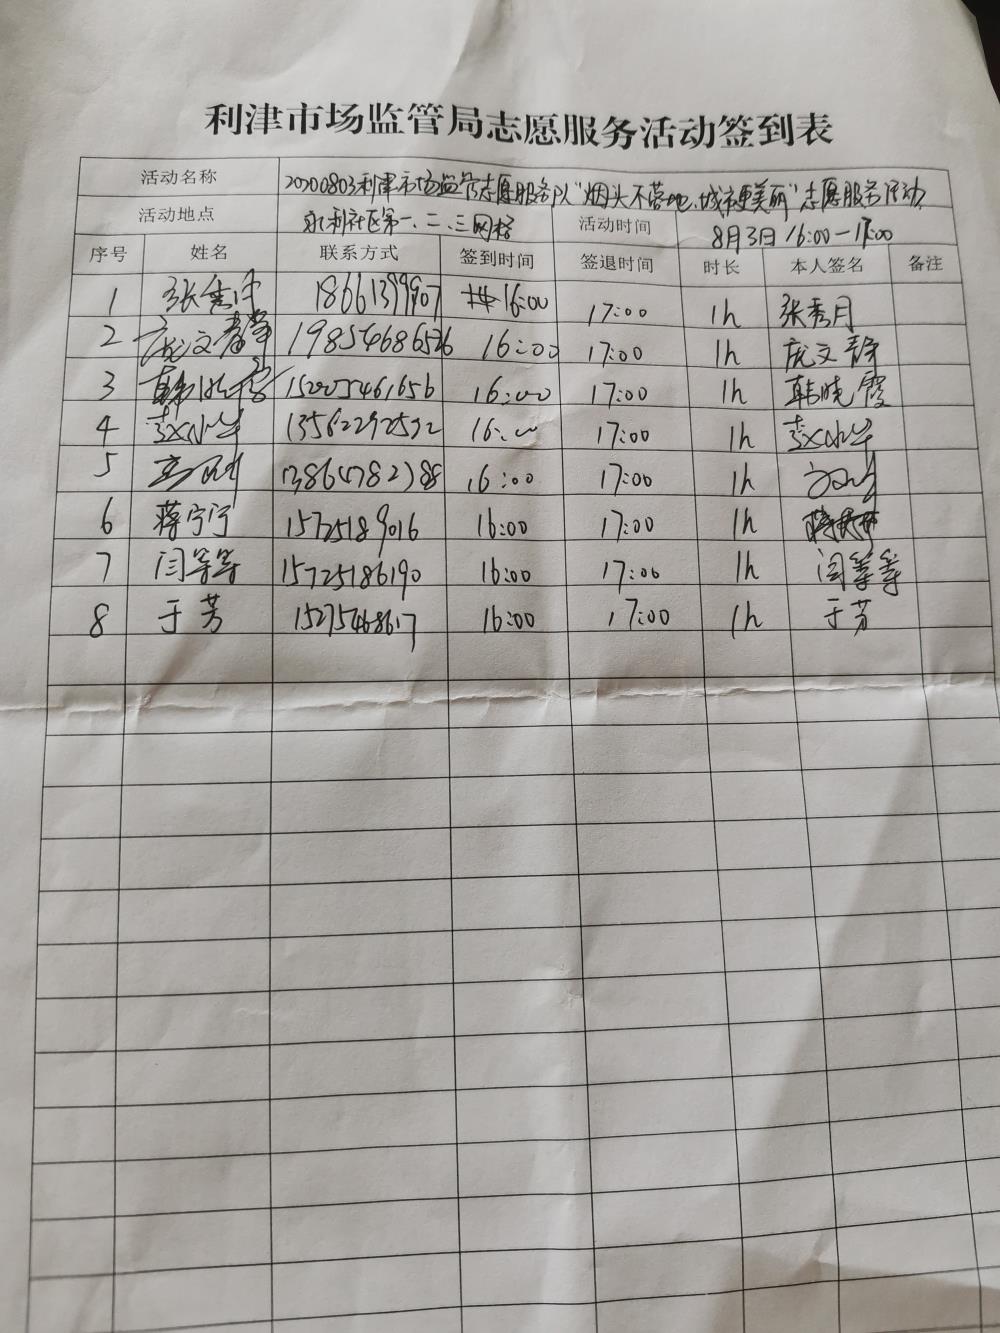 利津市场监管局志愿服务活动签到表
活动名称 20200803利津市场监管志愿服务队"烟头不落地、城市更美丽"志愿服务活动
活动地点 永利社区第一、二、三网格 活动时间 8月3日 16:00-17:00
序号 姓名 联系方式 签到时间 签退时间 时长 本人签名 备注
1 张秀月 18661399907 16:00 17:00 1h 张秀月
2 庞文静 19854686526 16:00 17:00 1h 庞文静
3 韩晓霞 15005461656 16:00 17:00 1h 韩晓霞
4 13562292592 16:00 17:00 1h
5 16:00 17:00 1h
6 蒋宁宁 15725189016 16:00 17:00 1h
7 闫等等 15725186190 16:00 17:00 1h 闫等等
8 于芳 16:00 17:00 1h 于芳